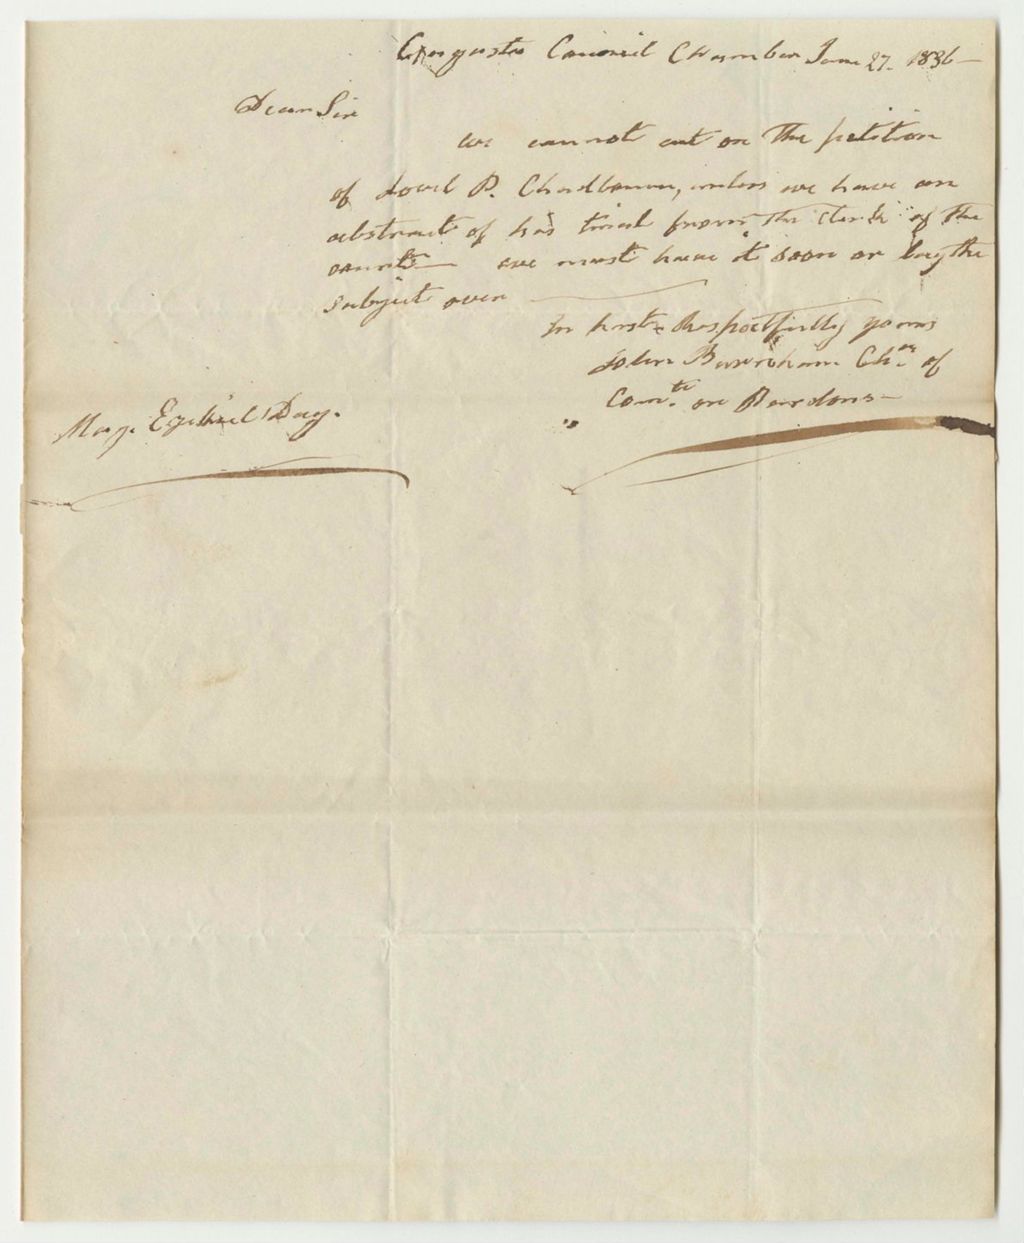 Augusta Council Chamber June 27. 1836—
Dear Sir
we cannot act on the petition
of Lovel P. Chadbourn, unless we have an
abstract of his trial from the Clerk of the
courts— we must have it soon or lay the
subject over
In haste Respectfully yours
John Burnham Chn. of
Comte. on Pardons—
Maj. Ezekiel Day.